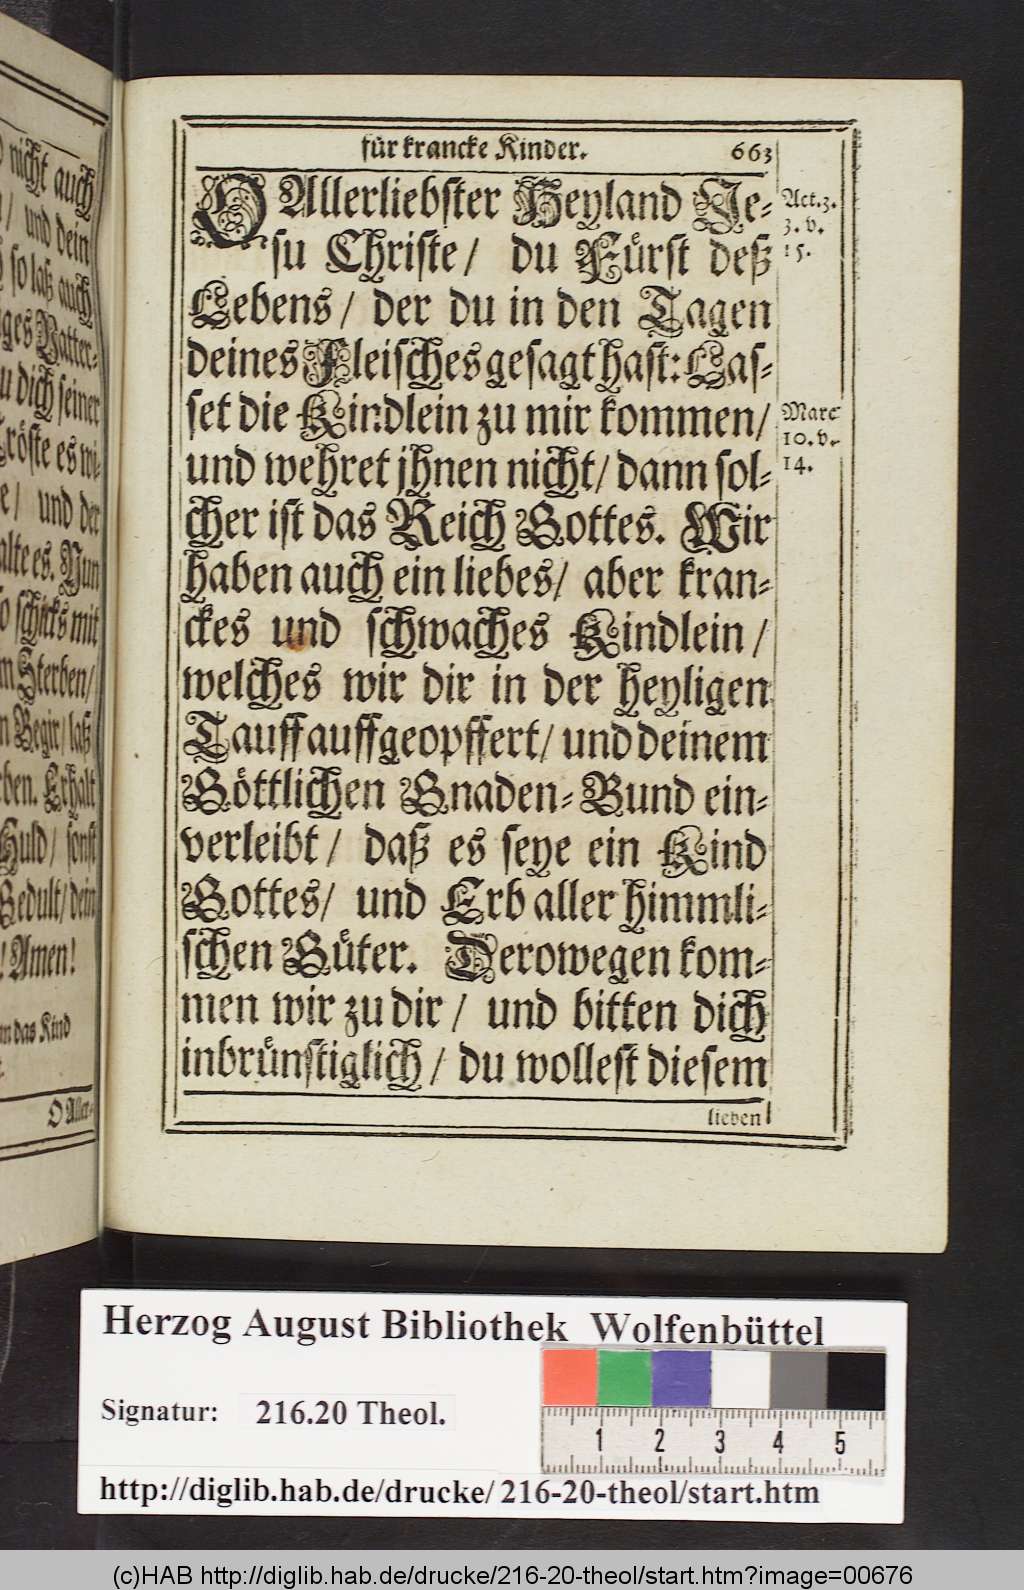 nicht auch
/ und dein
so laß auch
ges Vatter-
u dich seiner
Tröste es wi-
e/ und der
alte es. Nun
so schicks mit
m Sterben/
n Begir/ laß
ben. Erhalt
Huld/ sonst
Gedult/ dein
! Amen!
das Kind
O Aller-
für krancke Kinder. 663
O Allerliebster Heyland Je-
su Christe/ du Fürst deß
Lebens/ der du in den Tagen
deines Fleisches gesagt hast: Las-
set die Kindlein zu mir kommen/
und wehret jhnen nicht/ dann sol-
cher ist das Reich Gottes. Wir
haben auch ein liebes/ aber kran-
ckes und schwaches Kindlein/
welches wir dir in der heyligen
Tauff auffgeopffert/ und deinem
Göttlichen Gnaden-Bund ein-
verleibt/ daß es seye ein Kind
Gottes/ und Erb aller himmli-
schen Güter. Derowegen kom-
men wir zu dir/ und bitten dich
inbrünstiglich/ du wollest diesem
lieben
Act. 3.
3. v.
15.
Marc
10. v.
14.
Herzog August Bibliothek Wolfenbüttel
Signatur: 216.20 Theol.
1 2 3 4 5
http://diglib.hab.de/drucke/216-20-theol/start.htm
(c)HAB http://diglib.hab.de/drucke/216-20-theol/start.htm?image=00676